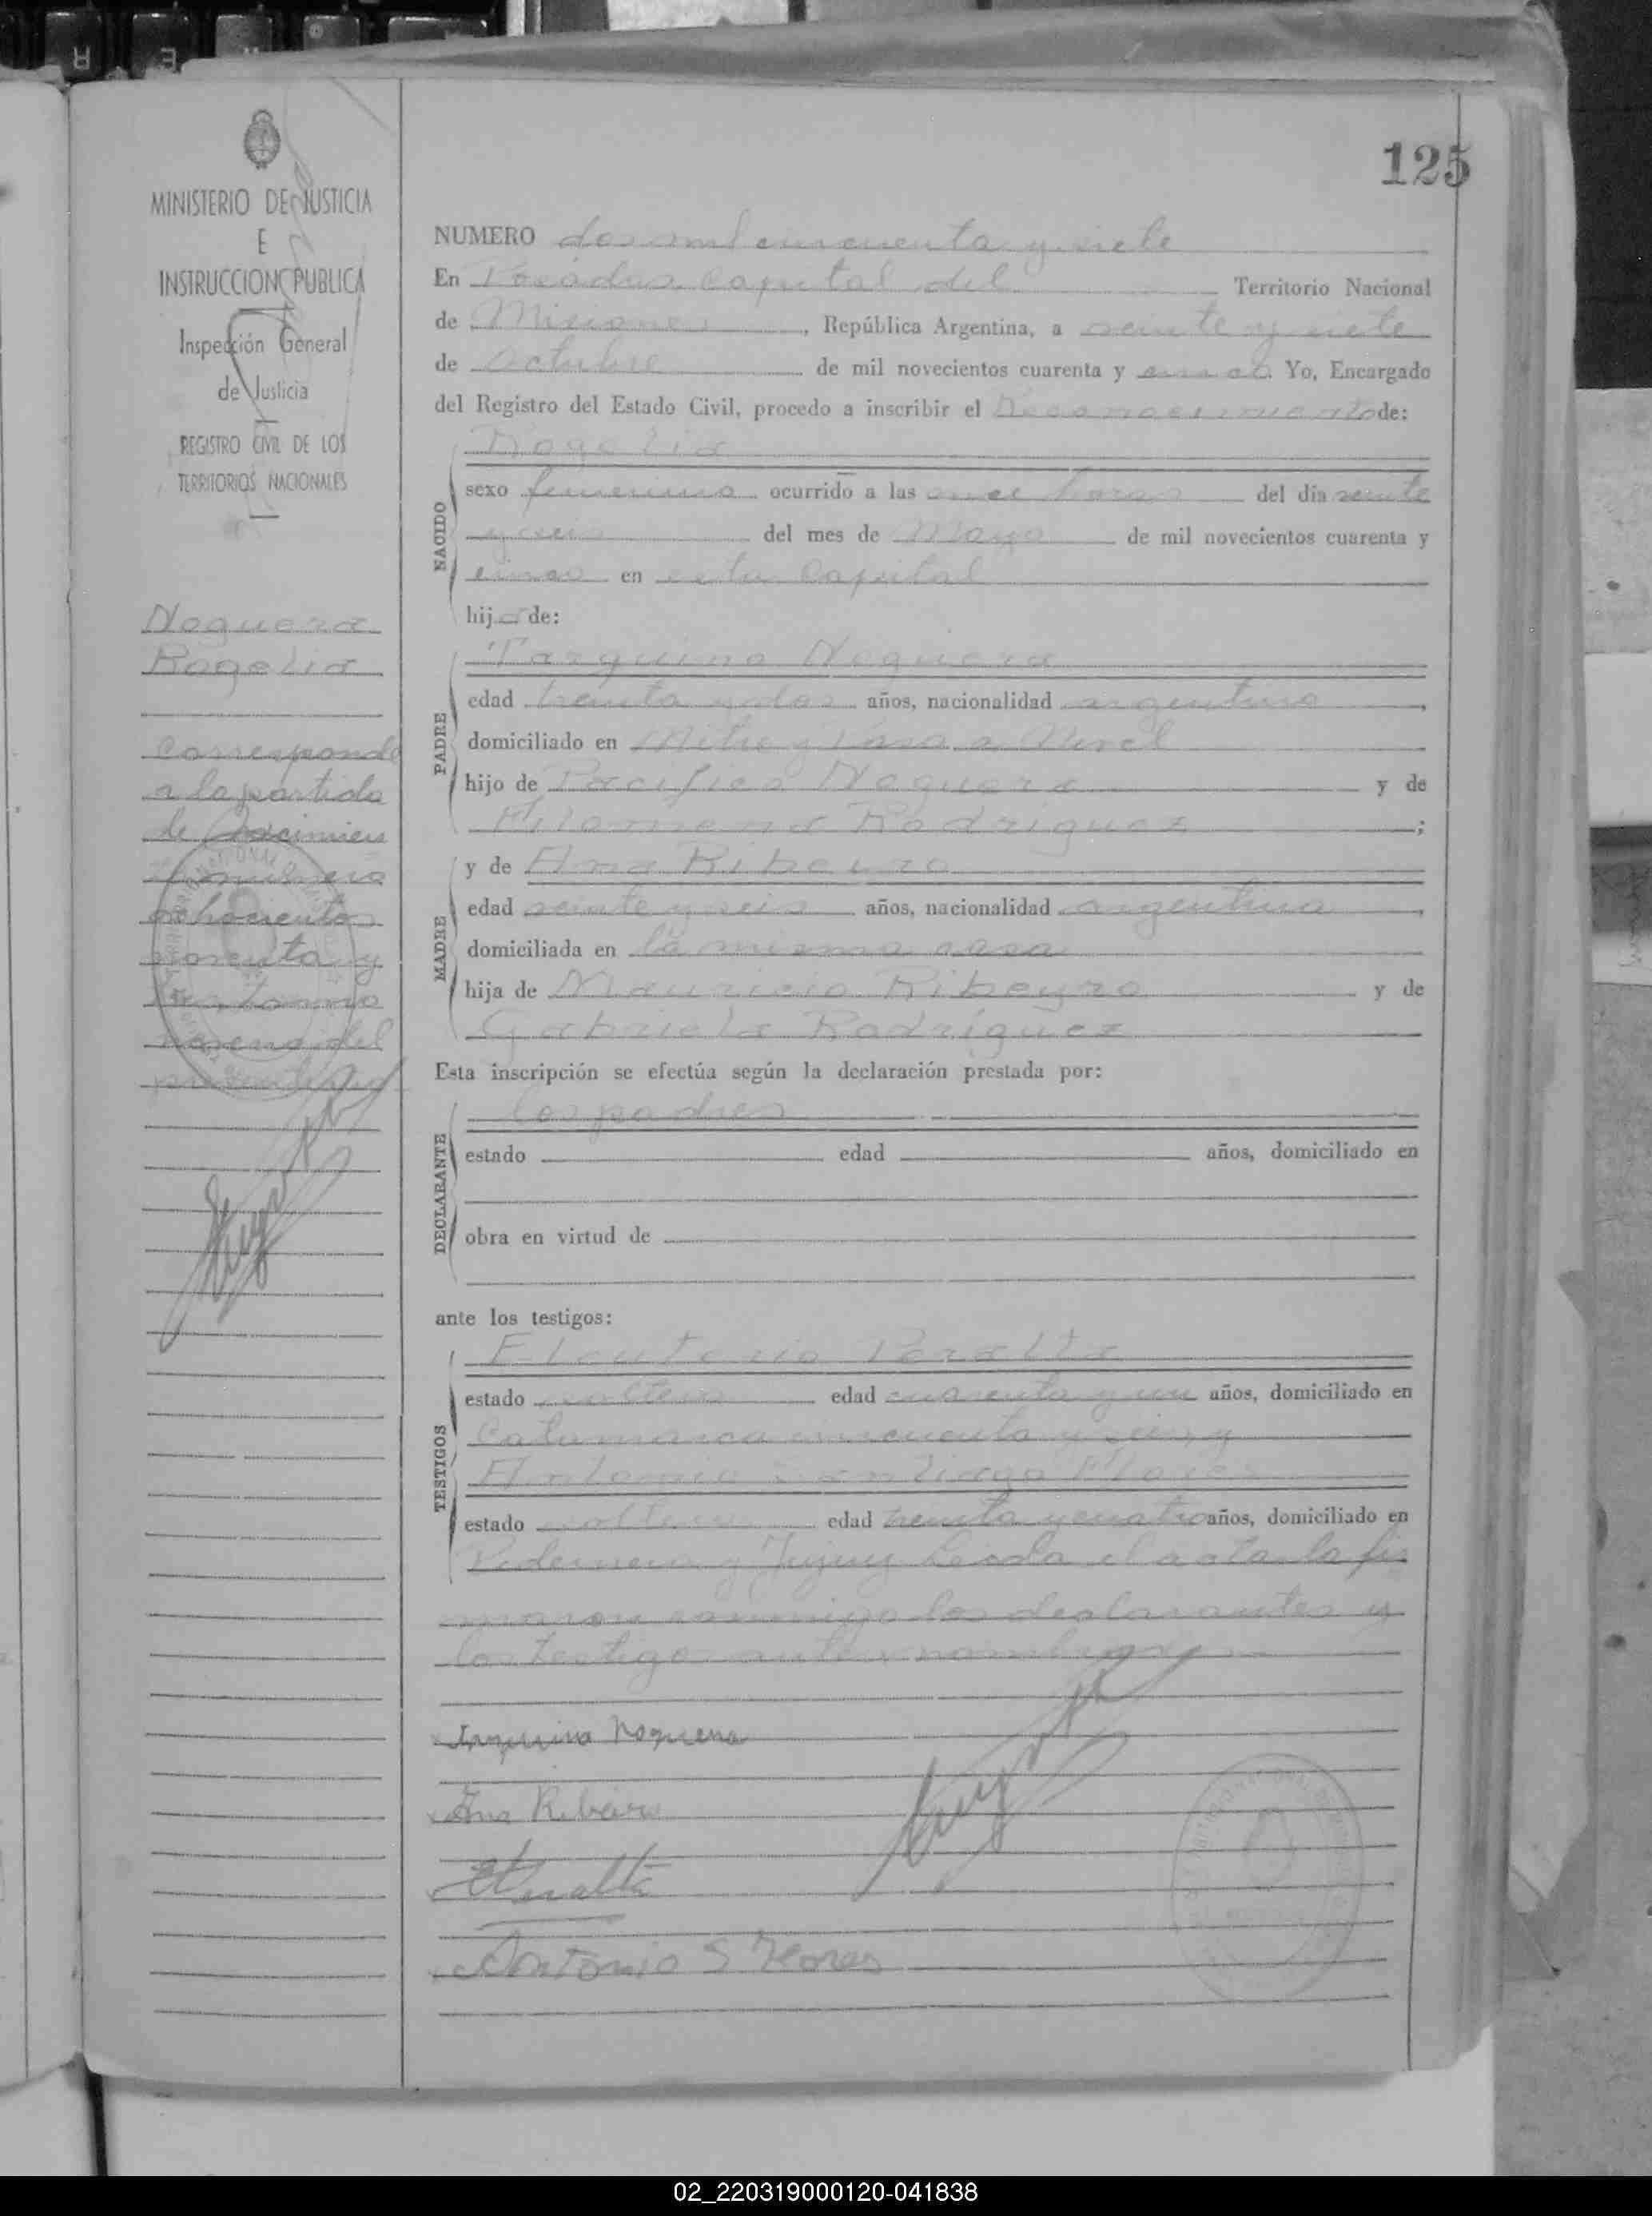 125
MINISTERIO DE JUSTICIA
E
INSTRUCCION PUBLICA
Inspección General
de Justicia
REGISTRO CIVIL DE LOS
TERRITORIOS NACIONALES
Noguera
Rogelia
corresponde
a la partida
de Nacimien
to número
ochocientos
noventa y
tomo
noveno del
presente
NUMERO dos mil cincuenta y siete
En Posadas Capital del Territorio Nacional
de Misiones, República Argentina, a veinte y siete
de Octubre de mil novecientos cuarenta y cinco. Yo, Encargado
del Registro del Estado Civil, procedo a inscribir el Reconocimiento de:
Rogelia
NACIDO
sexo femenino ocurrido a las once horas del día veinte
y seis del mes de Mayo de mil novecientos cuarenta y
cinco en esta Capital
hija de:
PADRE
Tarquino Noguera
edad treinta y dos años, nacionalidad argentino,
domiciliado en Mitre y
hijo de Pacifico Noguera y de
Filomena Rodriguez;
MADRE
y de Ana Ribeyro
edad veinte y seis años, nacionalidad argentina,
domiciliada en la misma casa
hija de Mauricio Ribeyro y de
Gabriela Rodríguez
Esta inscripción se efectúa según la declaración prestada por:
DECLARANTE
los padres
estado edad años, domiciliado en
obra en virtud de
ante los testigos:
TESTIGOS
Eleuterio Peralta
estado soltero edad cuarenta y un años, domiciliado en
Catamarca cincuenta y seis, y
Antonio Santiago Flores
estado soltero edad treinta y cuatro años, domiciliado en
Pedernera y Jujuy Leida el acta la fir
maron conmigo los declarantes y
los testigos antes nombrados
Tarquino Noguera
Ana Ribeiro
EPeralta
Antonio S Flores
02_220319000120-041838